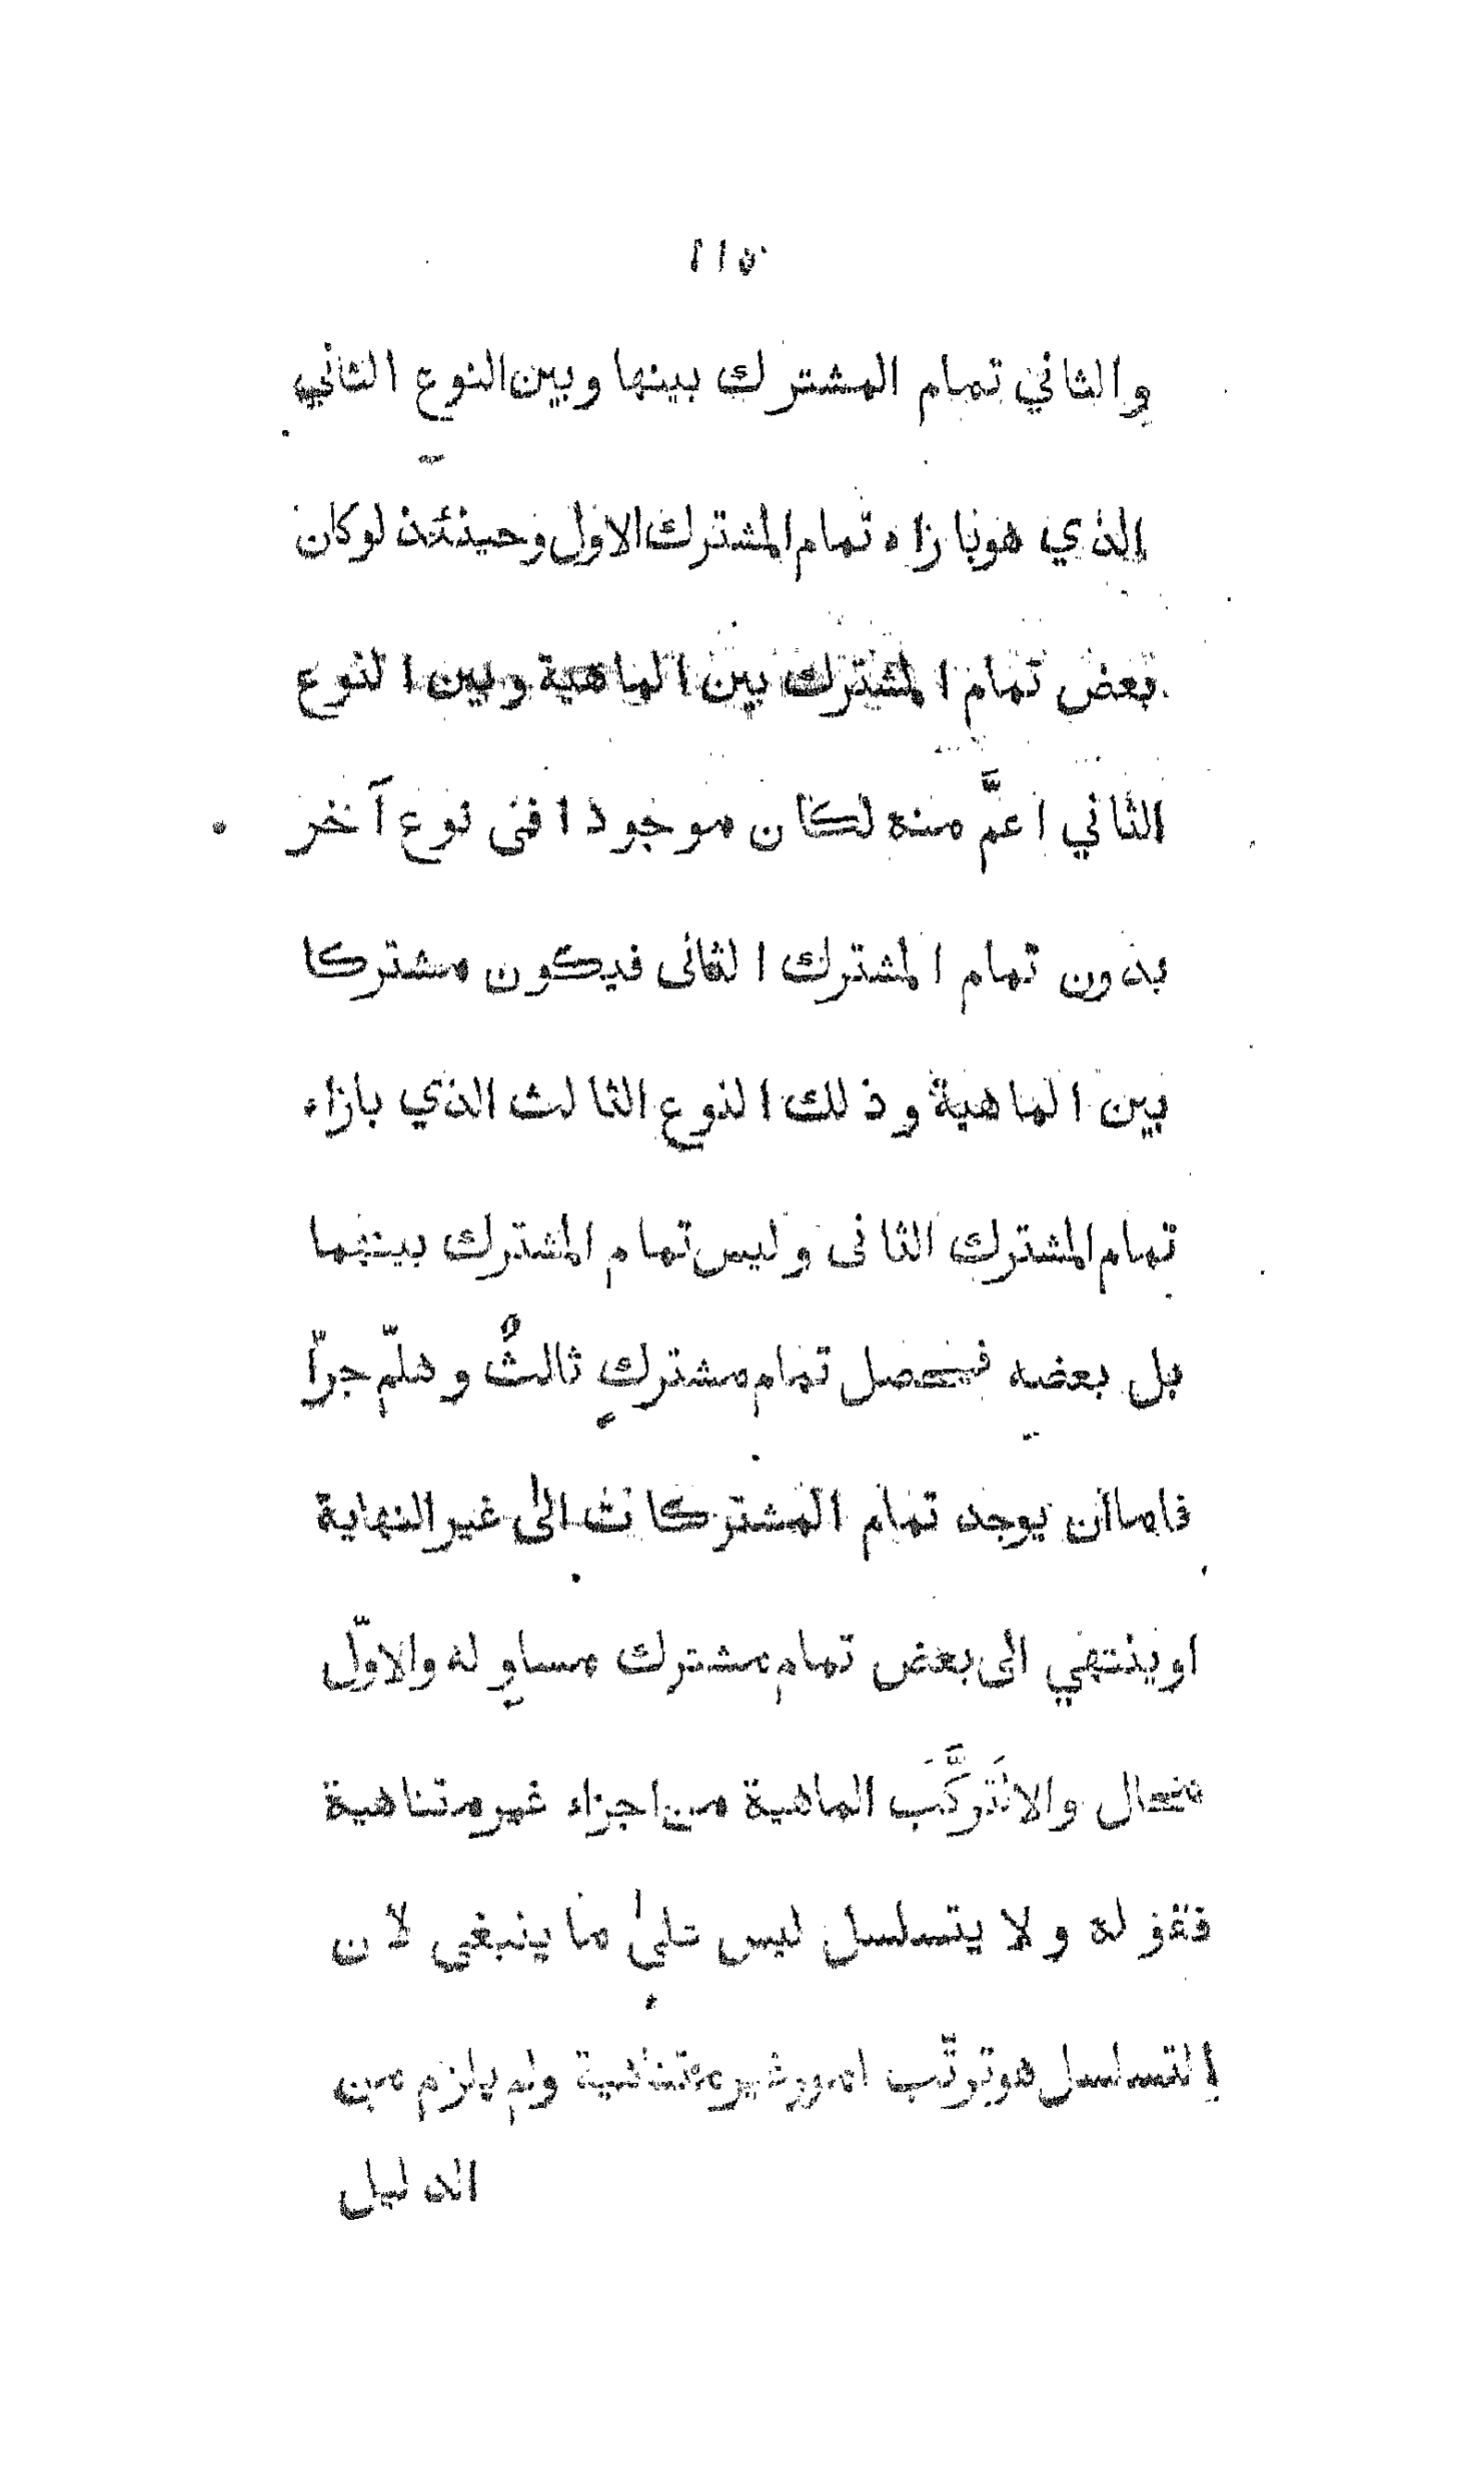 ١١٥
والثاني تمام المشترك بينها وبين النوع الثاني
الذي هو بازاء تمام المشترك الاول وحينئذ لو كان
بعض تمام المشترك بين الماهية وبين النوع
الثاني اعمَّ منه لكان موجودا فى نوع آخر
بدون تمام المشترك الثانى فيكون مشتركا
بين الماهية وذلك النوع الثالث الذي بازاء
تمام المشترك الثانى وليس تمام المشترك بينهما
بل بعضه فيحصل تمام مشتركٍ ثالثٌ وهلمّ جرّا
فاما ان يوجد تمام المشتركات الى غير النهاية
او ينتهي الى بعض تمام مشترك مساوٍ له والاوّل
محال والا لتَركَّبَ الماهية من اجزاء غير متناهية
فقوله ولا يتسلسل ليس على ما ينبغي لان
التسلسل هو ترتّب امور غير متناهية ولم يلزم من
الدليل